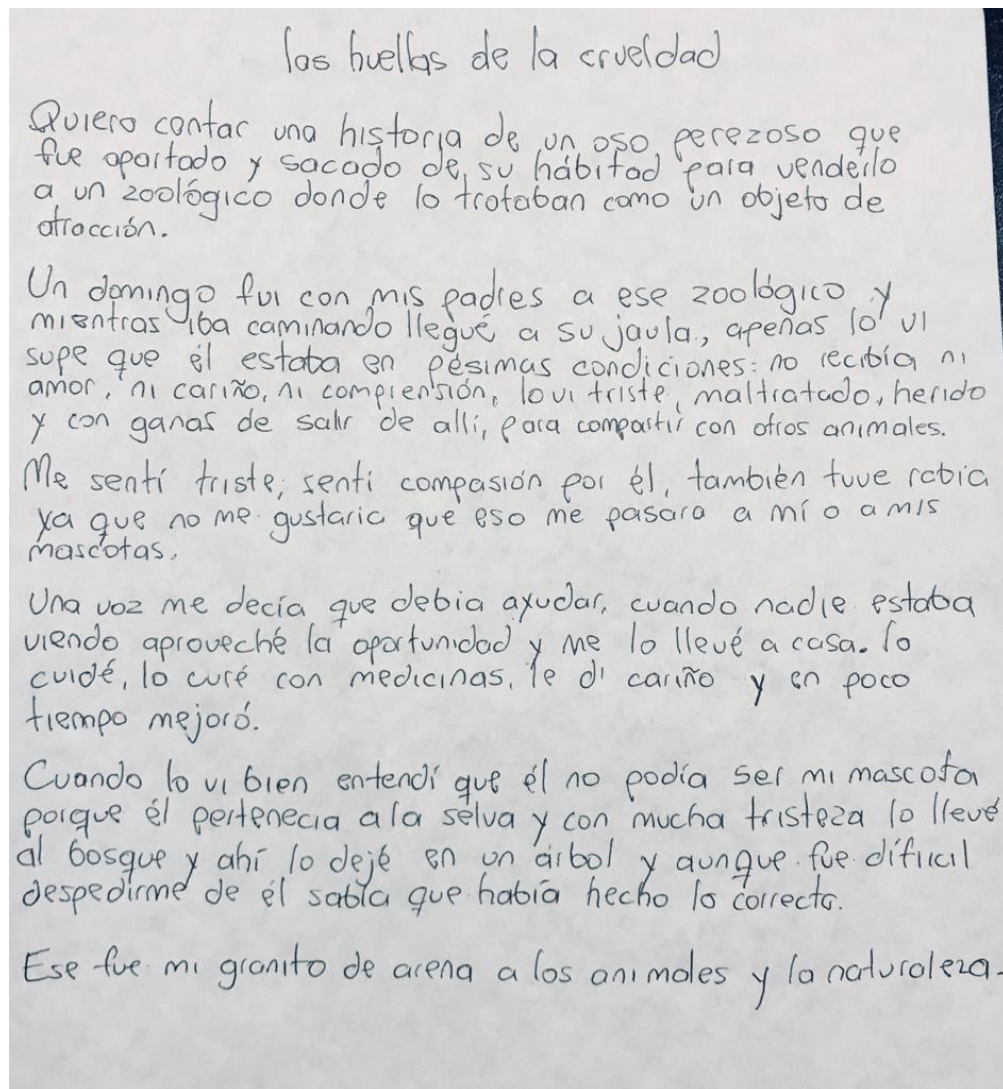 las huellas de la crueldad
Quiero contar una historia de un oso perezoso que
fue apartado y sacado de su hábitad para venderlo
a un zoológico donde lo trataban como un objeto de
atracción.
Un domingo fui con mis padres a ese zoológico y
mientras iba caminando llegué a su jaula, apenas lo vi
supe que él estaba en pésimas condiciones: no recibía ni
amor, ni cariño, ni comprensión, lo vi triste, maltratado, herido
y con ganas de salir de allí, para compartir con otros animales.
Me sentí triste, sentí compasión por él, también tuve rabia
ya que no me gustaría que eso me pasara a mí o a mis
mascotas.
Una voz me decía que debia ayudar, cuando nadie estaba
viendo aproveché la oportunidad y me lo llevé a casa. lo
cuidé, lo curé con medicinas, le di cariño y en poco
tiempo mejoró.
Cuando lo vi bien entendí que él no podía ser mi mascota
porque él pertenecia a la selva y con mucha tristeza lo llevé
al bosque y ahí lo dejé en un árbol y aunque fue difícil
despedirme de él sabía que había hecho lo correcto.
Ese fue mi granito de arena a los animales y la naturaleza.